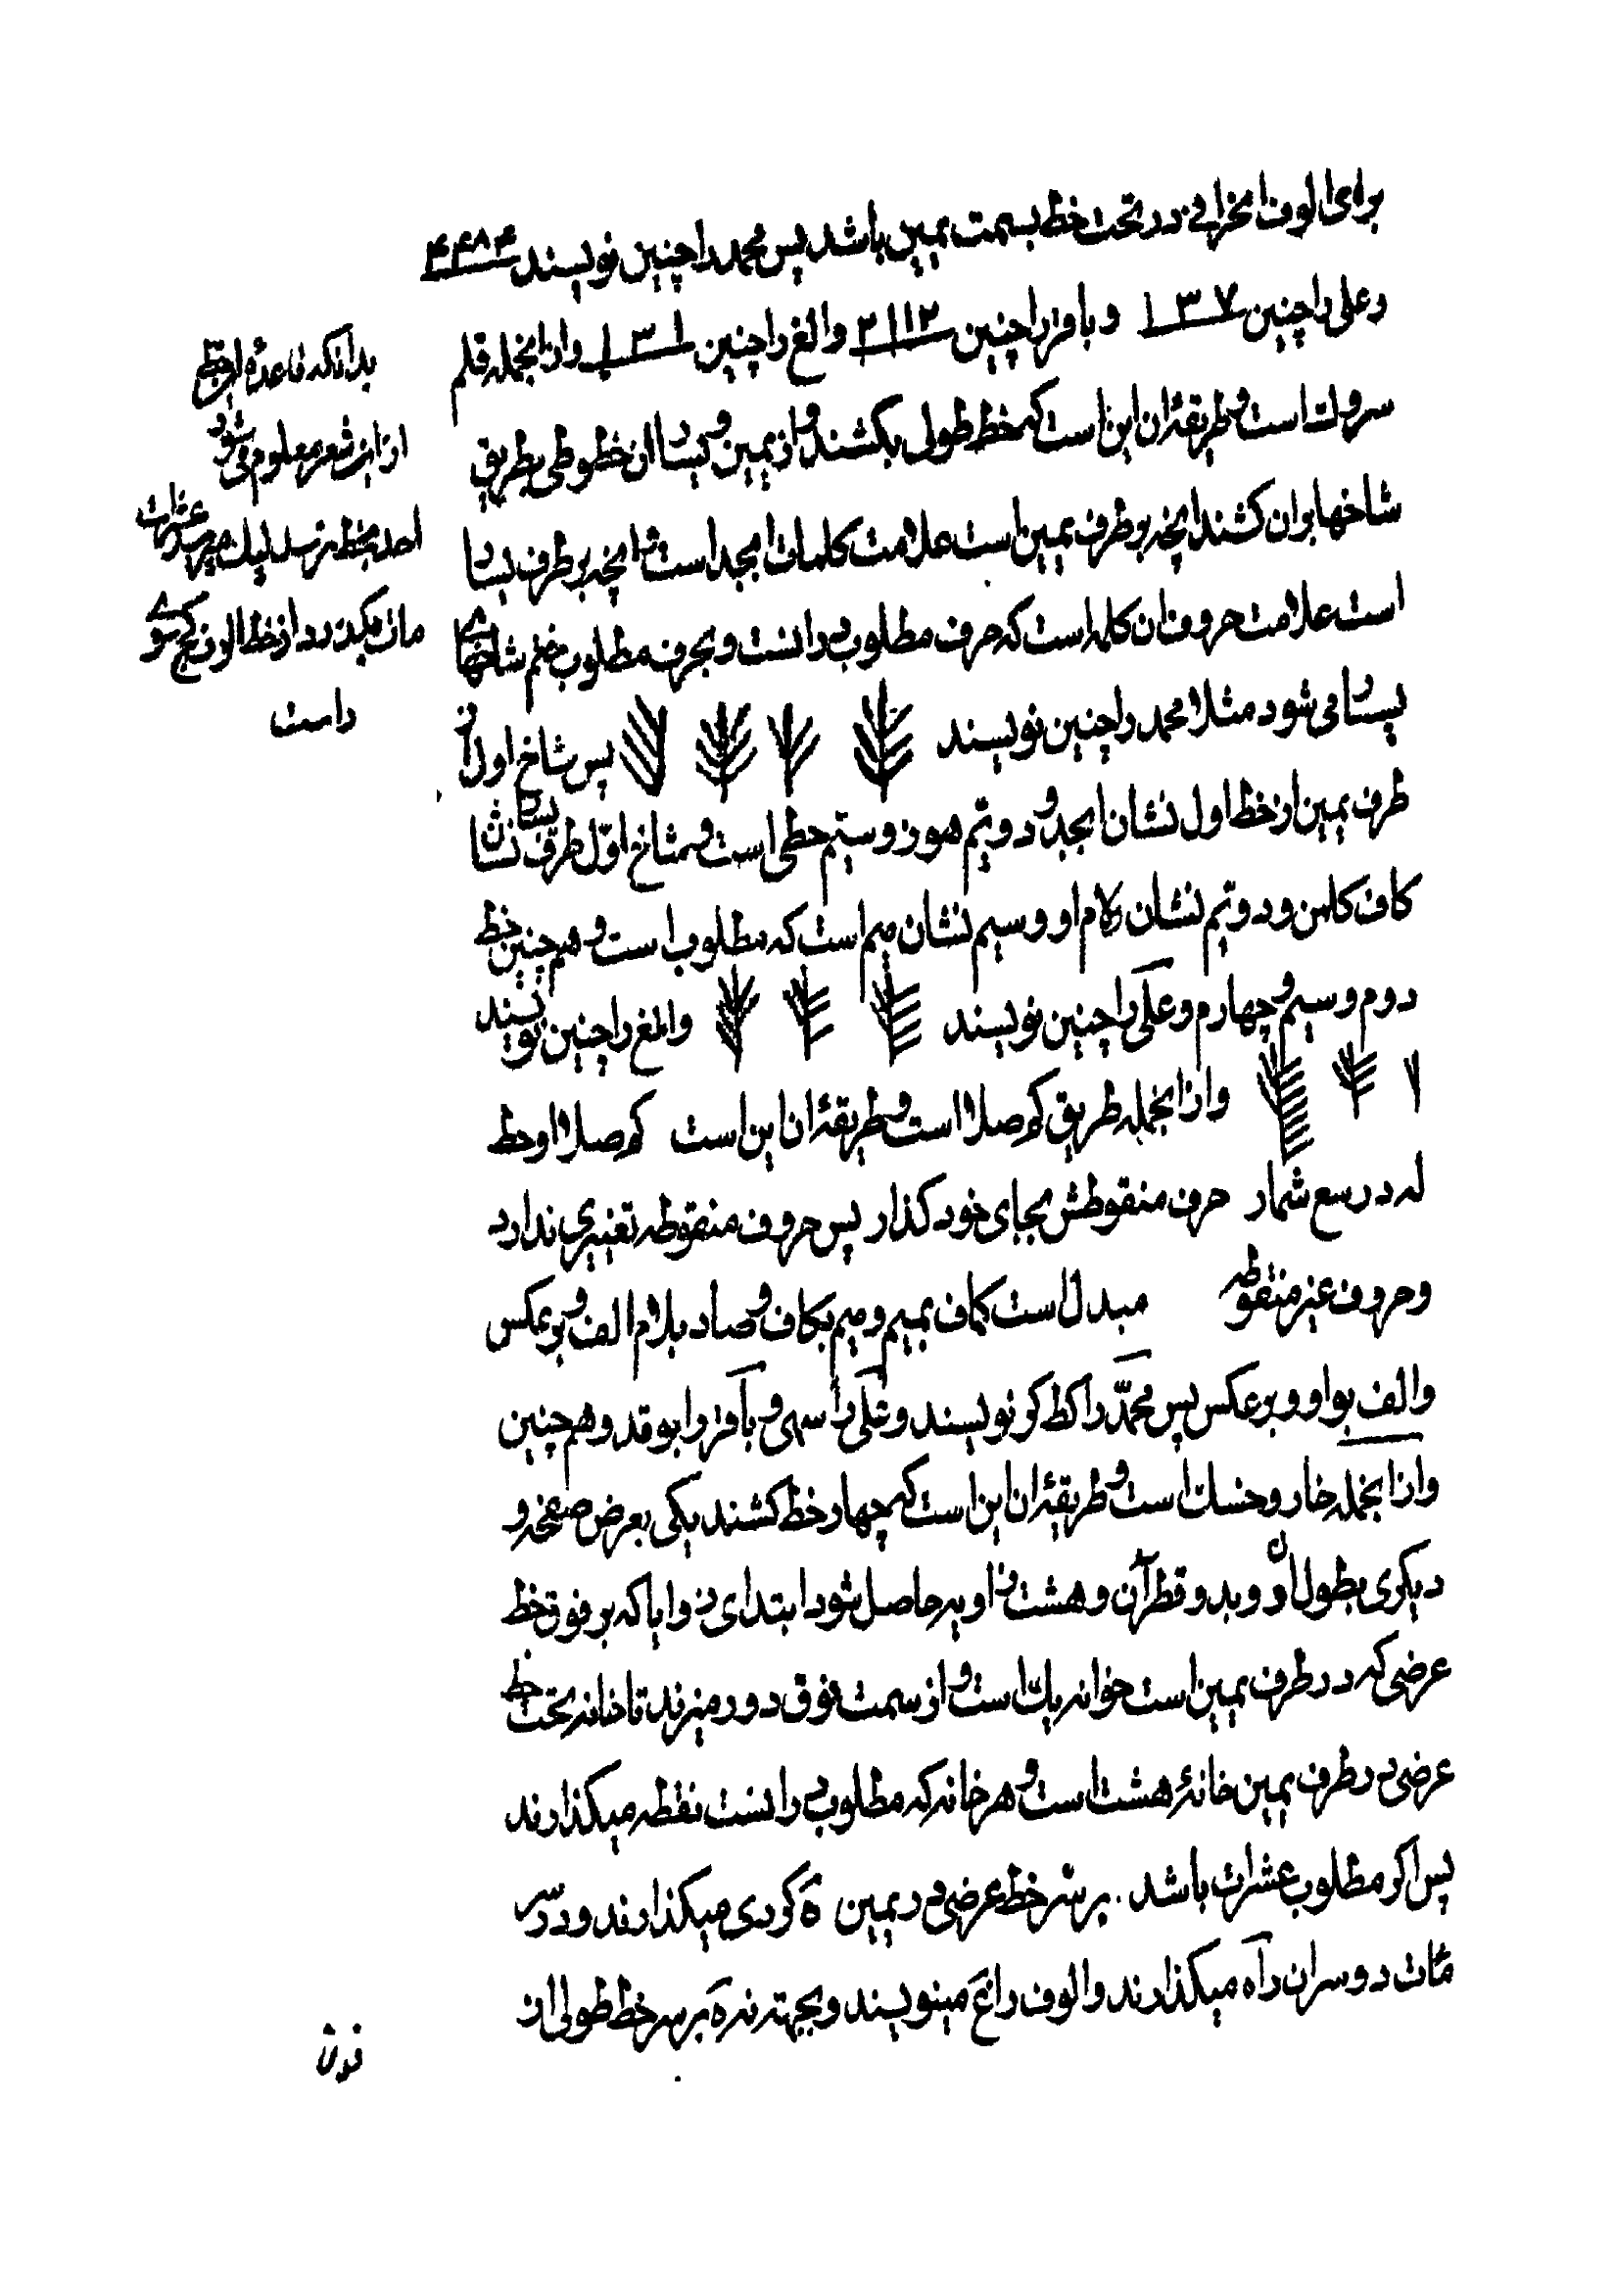 برای الوف انحرافی در تحت خط بسمت یمین باشد پس محمد را چنین نویسند ۴۴۸۴
و علی را چنین ۱۳۷ و باقر را چنین ۲۱۱۲ و الغ را چنین ۱۳۱ و ازانجمله قلم
سروات است و طریقهٔ ان این است که خط طولی بکشند و از یمین و یسار ان خطوطی بطریق
شاخها بران کشند انچه بر طرف یمین است علامت کلمات ابجد است و انچه بر طرف یسار
است علامت حروف ان کلمه است که حرف مطلوب در انست و بحرف مطلوب ختم شاخهای
یسار می شود مثلا محمد را چنین نویسند پس شاخ اول از
طرف یمین از خط اول نشان ابجد و دویم هوز و سیم حطی است و شاخ اوّل طرف یسار نشان
کاف کلمن و دویم نشان لام او و سیم نشان میم است که مطلوب است و هم چنین خط
دوم و سیم و چهارم و علی را چنین نویسند والغ را چنین نویسند
وازانجمله طریق کم صلا است و طریقهٔ ان این است کم صلا او حط
له در سع شمار حرف منقوطش بجای خود کذار پس حروف منقوطه تغییری ندارد
و حروف غیر منقوطه مبدل است کاف بمیم و میم بکاف و صاد بلام الف و بر عکس
و الف بواو و بر عکس پس محمّد را کط کو نویسند و علی را سهی و باقر را بوقد و هم چنین
وازانجمله خار و خسک است و طریقهٔ ان این است که چهار خط کشند یکی بعرض صفحه و
دیکری بطول ان و بدو قطر آن و هشت زاویه حاصل شود ابتدای زوایا که بر فوق خط
عرضی که در طرف یمین است خوانه یک است و از سمت فوق دور میزند تا خانه تحت خط
عرضی در طرف یمین خانهٔ هشت است و هر خانه که مطلوب در انست نقطه میکذارند
پس اکر مطلوب عشرات باشد بر سر خط عرضی در یمین ه کردی میکذارند و در
مأت دو سر ان را ه میکذارند و الوف را غ مینویسند و بجهته نره بر سر خط طولی از
بدانکه قاعده
از این شعر معلوم می شود
احد بخط نرسد لیک میرسد عشرات
مات میکذرد از خط الوف کج سوی
راست
فوق